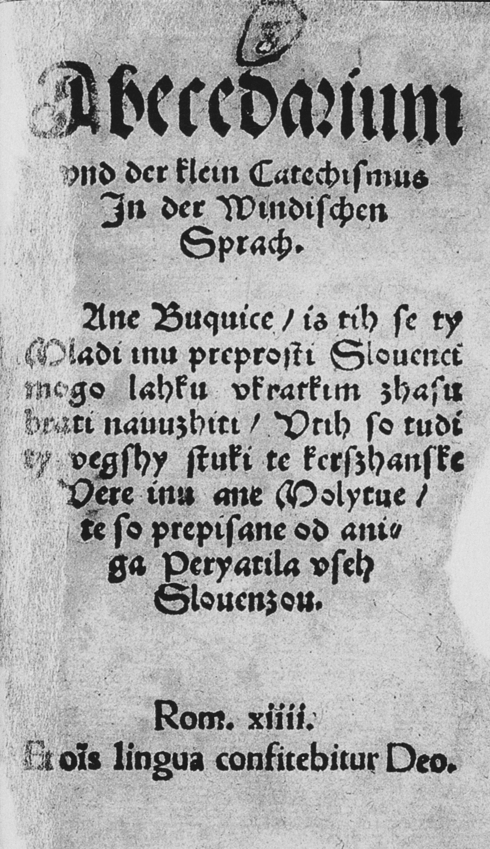 3
Abecedarium
vnd der klein Catechismus
In der Windischen
Sprach.
Ane Buquice / is tih se ty
Mladi inu preprosti Slouenci
mogo lahku vkratkim zhasu
brati nauuzhiti / Vtih so tudi
ty vegshy stuki te kerszhanske
Vere inu ane Molytue /
te so prepisane od ani⸗
ga Peryatila vseh
Slouenzou.
Rom. xiiii.
Et oĩs lingua confitebitur Deo.